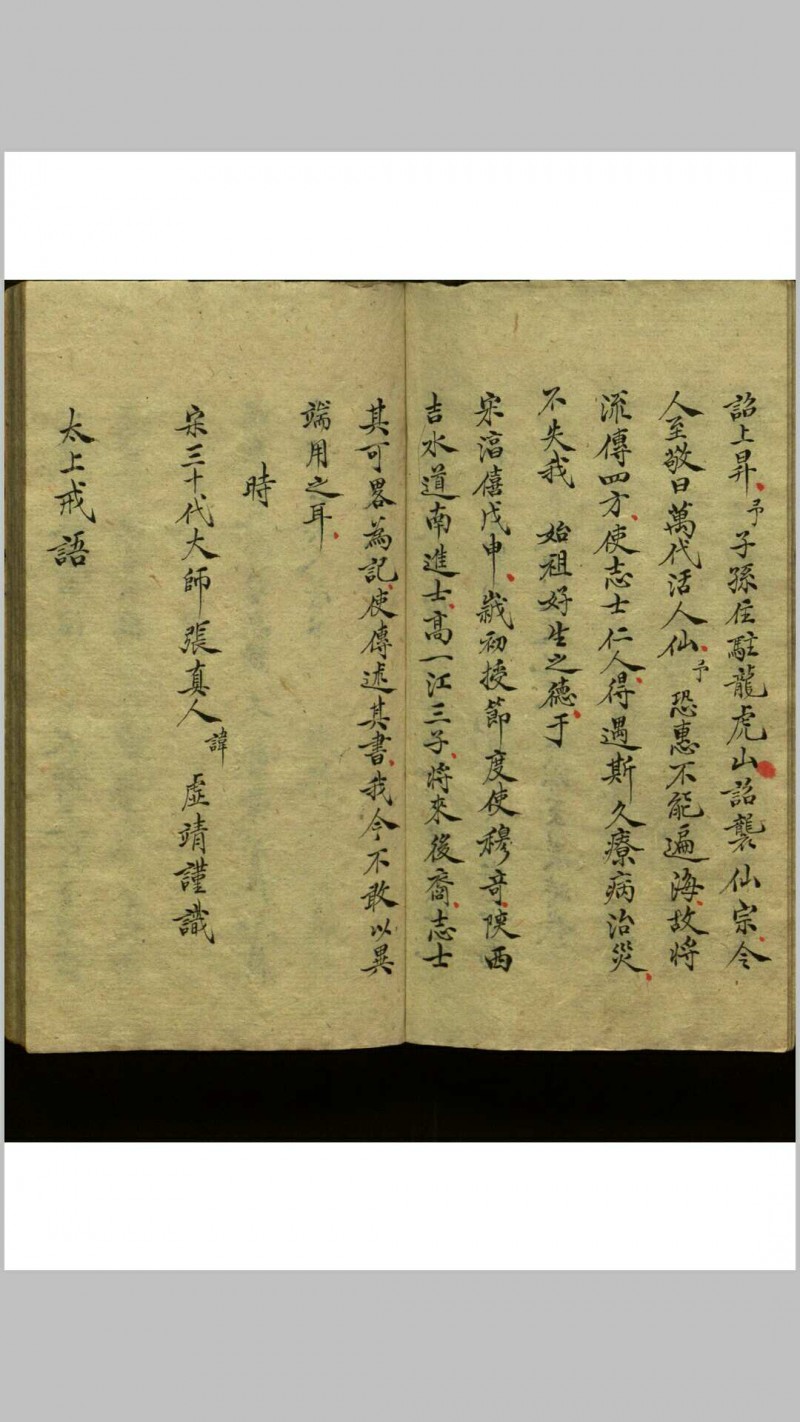 詔上昇予子孫住駐龍虎山詔襲仙宗令
人至敬曰萬代活人仙予恐惠不能遍海故將
流傳四方使志士仁人得遇斯久療病治災
不失我　始祖好生之德于
宋淳僖戊申歲初授節度使穆竒陝西
吉水道南進士高一江三子將來後裔志士
其可畧為記使傳述其書我今不敢以異
端用之耳
時
宋三十代大師張真人諱虛靖謹識
太上戒語